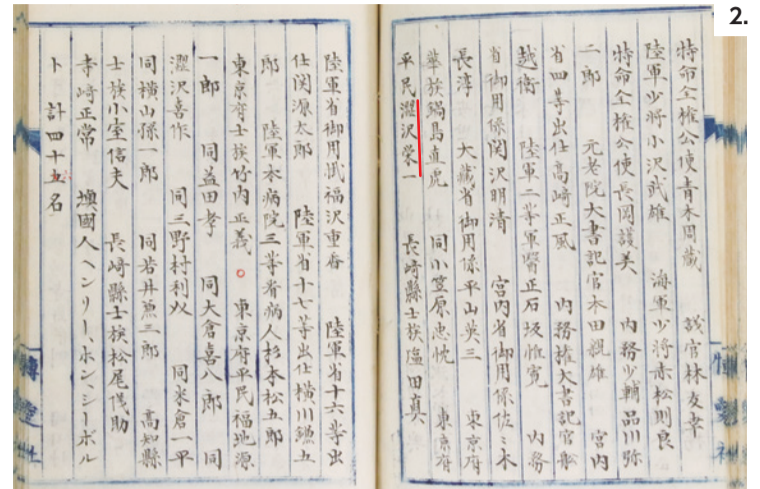 2.
特命全権公使青木周蔵 議官林友幸
陸軍少将小沢武雄 海軍少将赤松則良
特命全権公使長岡護美 内務少輔品川弥
二郎 元老院大書記官本田親雄 宮内
省四等出仕高崎正風 内務権大書記官船
越衛 陸軍二等軍医正石坂惟寛 内務
省御用係関沢明清 宮内省御用係佐々木
長淳 大蔵省御用係平山英三 東京府
華族鍋島直虎 同小笠原忠忱 東京府
平民澀沢栄一 長崎縣士族塩田真
陸軍省御用掛福沢重香 陸軍省十六等出
仕関源太郎 陸軍省十七等出仕横川鐮五
郎 陸軍本病院三等看病人杉本松五郎
東京府士族竹内正義 東京府平民福地源
一郎 同益田孝 同大倉喜八郎 同
澀沢喜作 同三野村利以 同米倉一平
同横山孫一郎 同若井兼三郎 高知縣
士族小室信夫 長崎縣士族松尾儀助
寺崎正常 墺國人ヘンリー、ホン、シーボル
ト 計四十五名